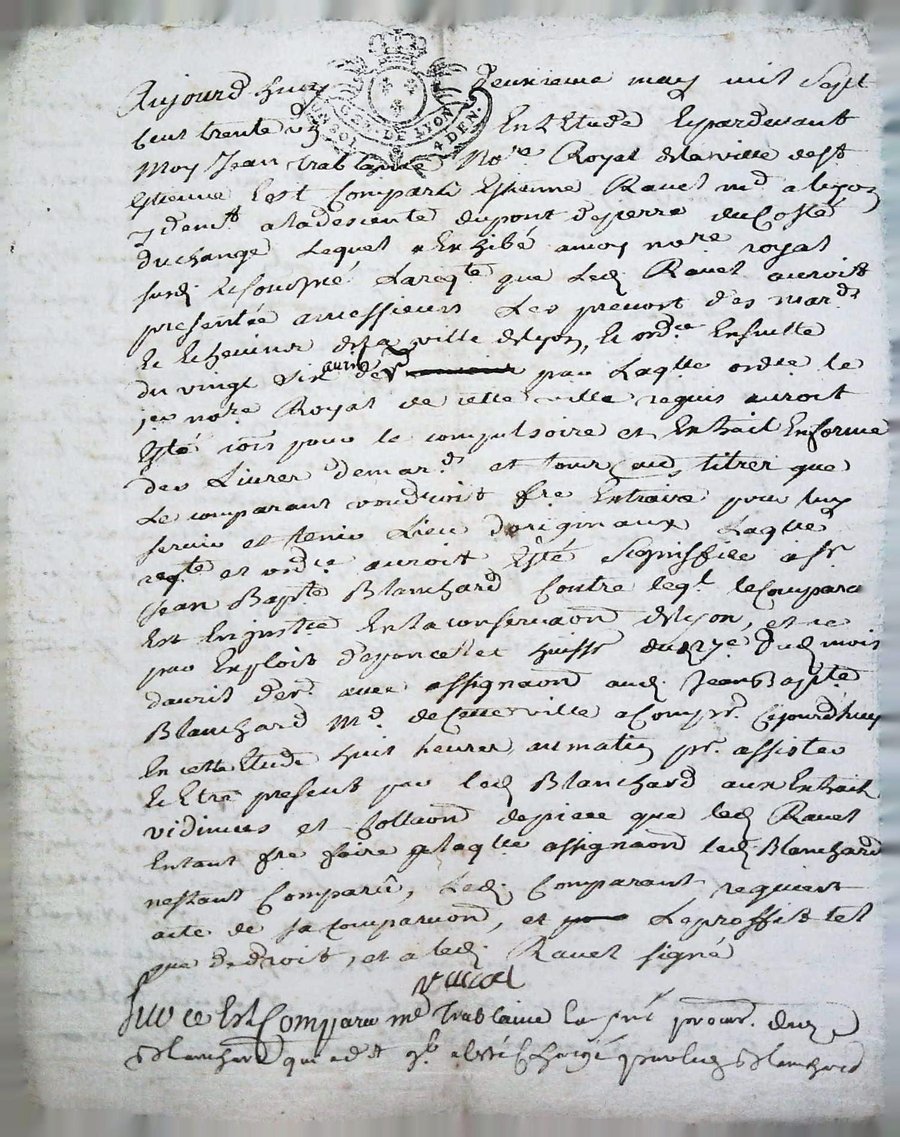 GEN. DE LYON
UN SOL 4 DEN.
Aujourd'huy deuxieme may mil sept
cent trente En L'Etude Et pardevant
Moy Jean trablaine No.re Royal de la ville de St
Etienne Est Comparu Estienne Ravel md a lyon
y demt a la descente du pont de pierre du Costé
du change Lequel a Exhibé a moy no.re royal
susd. soussigné La reqte que Led. Ravel auroit
presentée a messieurs Les prevost des mards
Et Echevins de la ville de lyon, Et ordce Ensuitte
du vingt six avril der par Laqlle ordce le
je no.re Royal de cette ville requis auroit
Esté pour le compulsoire et Extrait En forme
des Livres de mards et tous titres que
Le comparant voudroit fre Extraire pour luy
servir et tenir Lieu d'originaux Laqlle
reqte et ordce auroit Esté Signiffiée a sr
Jean Bapte Blanchard Contre leql le Comparant
Est En justce En la conservaon de lyon, et ce
par Exploit de poncellet huissr du 29e dud. mois
d'avril der avec assignaon aud. Jean Bapte
Blanchard Md. de Cette ville a Compr. Cejourd'huy
En cette Etude huit heures au matin pr. assister
Et Etre present par led. Blanchard aux Extraits
vidimus et Collaon de piece que led. Ravel
Entend fre faire a laqlle assignaon led. Blanchard
n'estant Comparu, Led. Comparant requiert
acte de sa Comparuon, et Le proffit tel
que de droit, et a led. Ravel signé
Ravel
Sur ce Est Comparu me Trablaine procur. dud.
Blanchard qui a dit par led. Blanchard